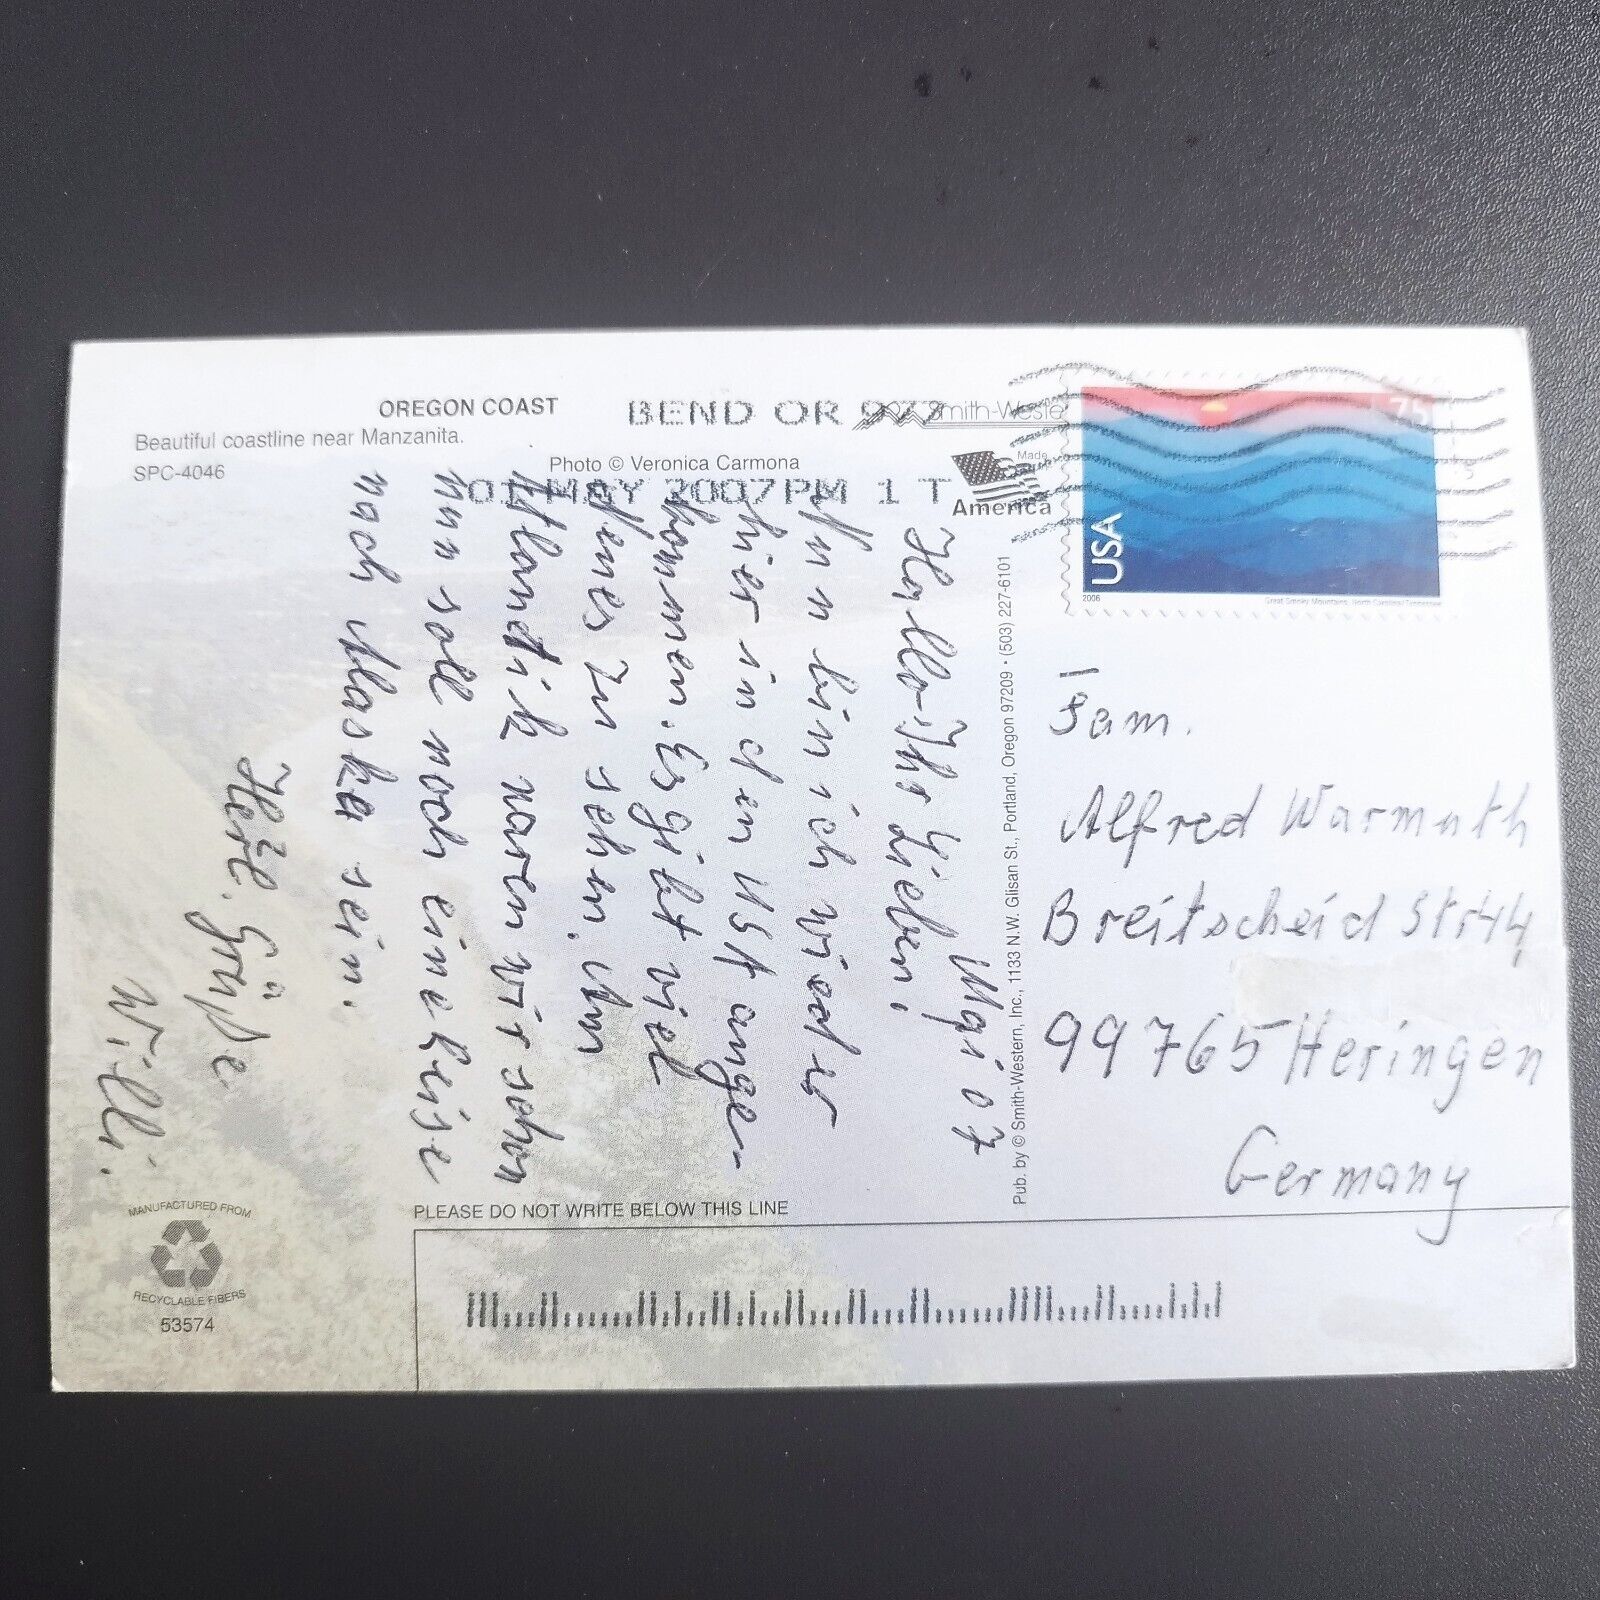 OREGON COAST
Beautiful coastline near Manzanita.
SPC-4046
Photo © Veronica Carmona
BEND OR 977
01 MAY 2007 PM 1 T
Smith-Weste
Made
America
75
USA
2006
Great Smoky Mountains, North Carolina/Tennessee
Mai 07
Hallo Ihr Lieben,
Nun bin ich wieder
hier in den USA ange-
kommen. Es gibt viel
Neues zu sehen. Am
Atlantik waren wir schon
nun soll noch eine Reise
nach Alaska sein.
Herzl. Grüße
Willi.
Pub. by © Smith-Western, Inc., 1133 N.W. Glisan St., Portland, Oregon 97209 • (503) 227-6101
Fam.
Alfred Warmuth
Breitscheid Str 44
99765 Heringen
Germany
MANUFACTURED FROM
RECYCLABLE FIBERS
53574
PLEASE DO NOT WRITE BELOW THIS LINE